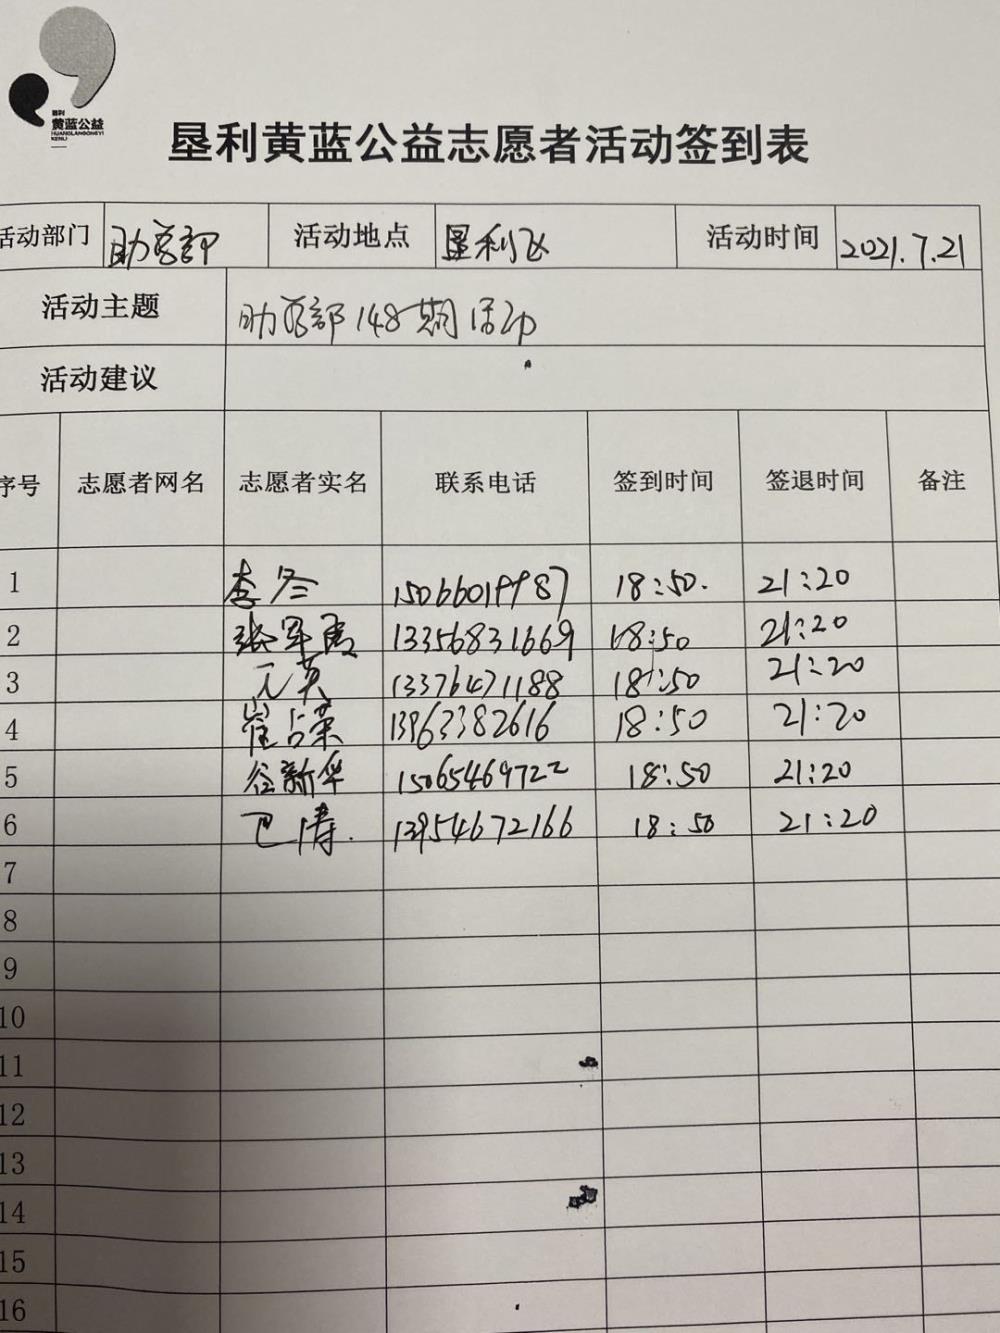 垦利
黄蓝公益
HUANGLANGONGYI
KENLI
垦利黄蓝公益志愿者活动签到表
活动部门 助学部 活动地点 垦利区 活动时间 2021.7.21
活动主题 助学部148期活动
活动建议
序号 志愿者网名 志愿者实名 联系电话 签到时间 签退时间 备注
1 李冬 15066019987 18:50. 21:20
2 张军 13356831669 18:50 21:20
3 英 13376471188 18:50 21:20
4 崔占荣 13963382616 18:50 21:20
5 谷新华 15065469722 18:50 21:20
6 卫涛. 13954672166 18:50 21:20
7
8
9
10
11
12
13
14
15
16